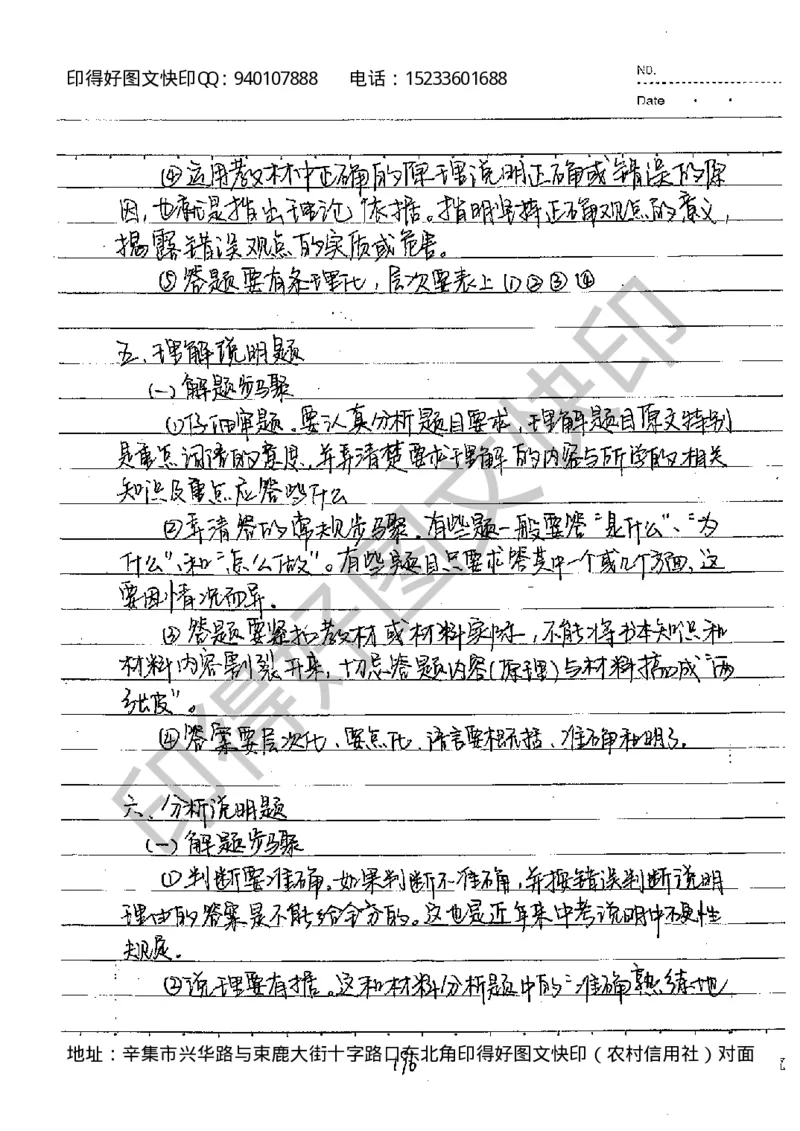 印得好图文快印QQ：940107888 电话：15233601688
NO.
Date
④运用教材中正确的原理说明正确或错误的原
因，也就是指出理论依据。指明坚持正确观点的意义，
揭露错误观点的实质或危害。
⑤答题要有条理化，层次要表上①②③④
五、理解说明题
（一）解题步骤
①仔细审题。要认真分析题目要求，理解题目原文特别
是重点词语的意思，并弄清楚要求理解的内容与所学的相关
知识及重点应答些什么
②弄清答的常规步骤。有些题一般要答“是什么”、“为
什么”、和“怎么做”。有些题目只要求答其中一个或几个方面，这
要因情况而异。
③答题要紧扣教材或材料实际，不能将书本知识和
材料内容割裂开来，切忌答题内容（原理）与材料搞成“两
张皮”。
④答案要层次化、要点化、语言要概括、准确和明了。
六、分析说明题
（一）解题步骤
①判断要准确。如果判断不准确，并按错误判断说明
理由的答案是不能给全分的。这也是近年来中考说明中
规定。
②说理要有据。这和材料分析题中的“准确熟练地
地址：辛集市兴华路与束鹿大街十字路口东北角印得好图文快印（农村信用社）对面
196
印得好图文快印